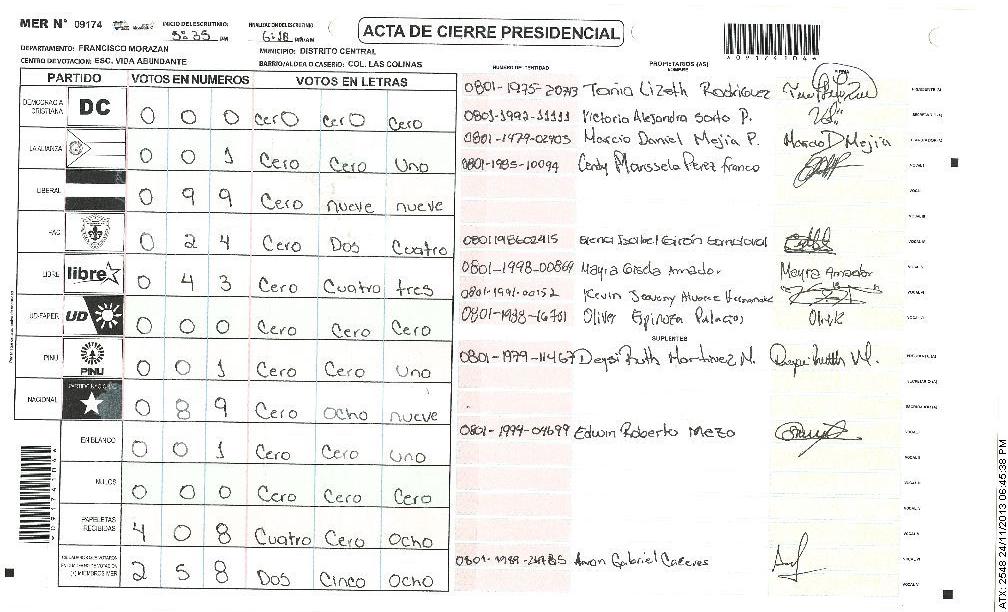 MER N° 09174 INICIO DEL ESCRUTINIO: 5:35 PM 6:18 PM/AM
ACTA DE CIERRE PRESIDENCIAL
DEPARTAMENTO: FRANCISCO MORAZAN MUNICIPIO: DISTRITO CENTRAL
CENTRO DE VOTACION: ESC. VIDA ABUNDANTE BARRIO/ALDEA O CASERIO: COL. LAS COLINAS
PARTIDO VOTOS EN NUMEROS VOTOS EN LETRAS
DEMOCRACIA CRISTIANA DC 0 0 0 cero cero cero
LA ALIANZA 0 0 1 Cero Cero Uno
LIBERAL 0 9 9 Cero nueve nueve
PAC 0 2 4 Cero Dos Cuatro
LIBRE libre 0 4 3 Cero Cuatro tres
UD-FAPER UD 0 0 0 Cero Cero Cero
PINU PINU 0 0 1 Cero Cero Uno
NACIONAL PARTIDO NACIONAL 0 8 9 Cero ocho nueve
EN BLANCO 0 0 1 Cero Cero uno
NULOS 0 0 0 Cero Cero Cero
PAPELETAS RECIBIDAS 4 0 8 Cuatro Cero Ocho
2 5 8 Dos Cinco Ocho
NUMERO DE IDENTIDAD PROPIETARIOS (AS) NOMBRE FIRMA
Tania Lizeth Rodriguez
Victoria Alejandra Sorto P.
0801-1979-02905 Marcio Daniel Mejia P. Marcio D Mejia
0801-1985-10094 Perez Franco
0801198602415 Isabel Girón Sandoval
0801-1998-00869 Mayra Gisela Amador Mayra Amador
0801-1991-00152 Kevin
0801-1988-16701 Oliver Espinoza Palacios
SUPLENTES
0801-1979-11467 Deysi Ruth Martinez N.
0801-1979-04699 Edwin Roberto Mezo
Gabriel Caceres
ATX: 2548 24/11/2013 06:45:38 PM